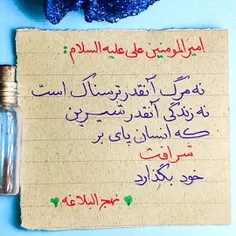 امیرالمومنین علی علیه السلام :
نه مرگ آنقدر ترسناک است
نه زندگی آنقدر شیرین
که انسان پای بر
شرافت
خود بگذارد
نهج البلاغه